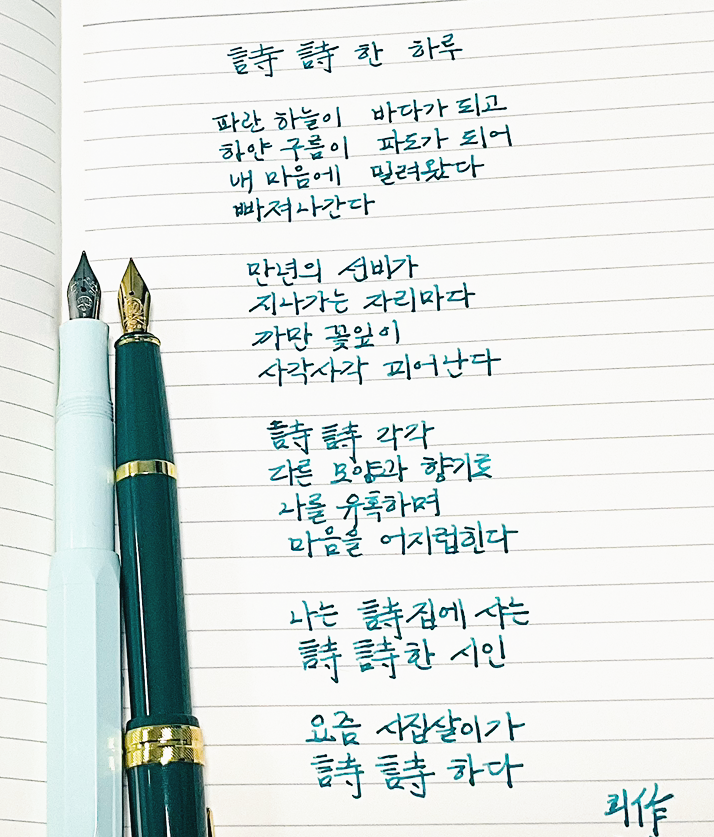 詩詩한 하루
파란 하늘이 바다가 되고
하얀 구름이 파도가 되어
내 마음에 밀려왔다
빠져나간다
만년의 선비가
지나가는 자리마다
까만 꽃잎이
사각사각 피어난다
詩詩각각
다른 모양과 향기로
나를 유혹하며
마음을 어지럽힌다
나는 詩집에 사는
詩詩한 시인
요즘 시집살이가
詩詩하다